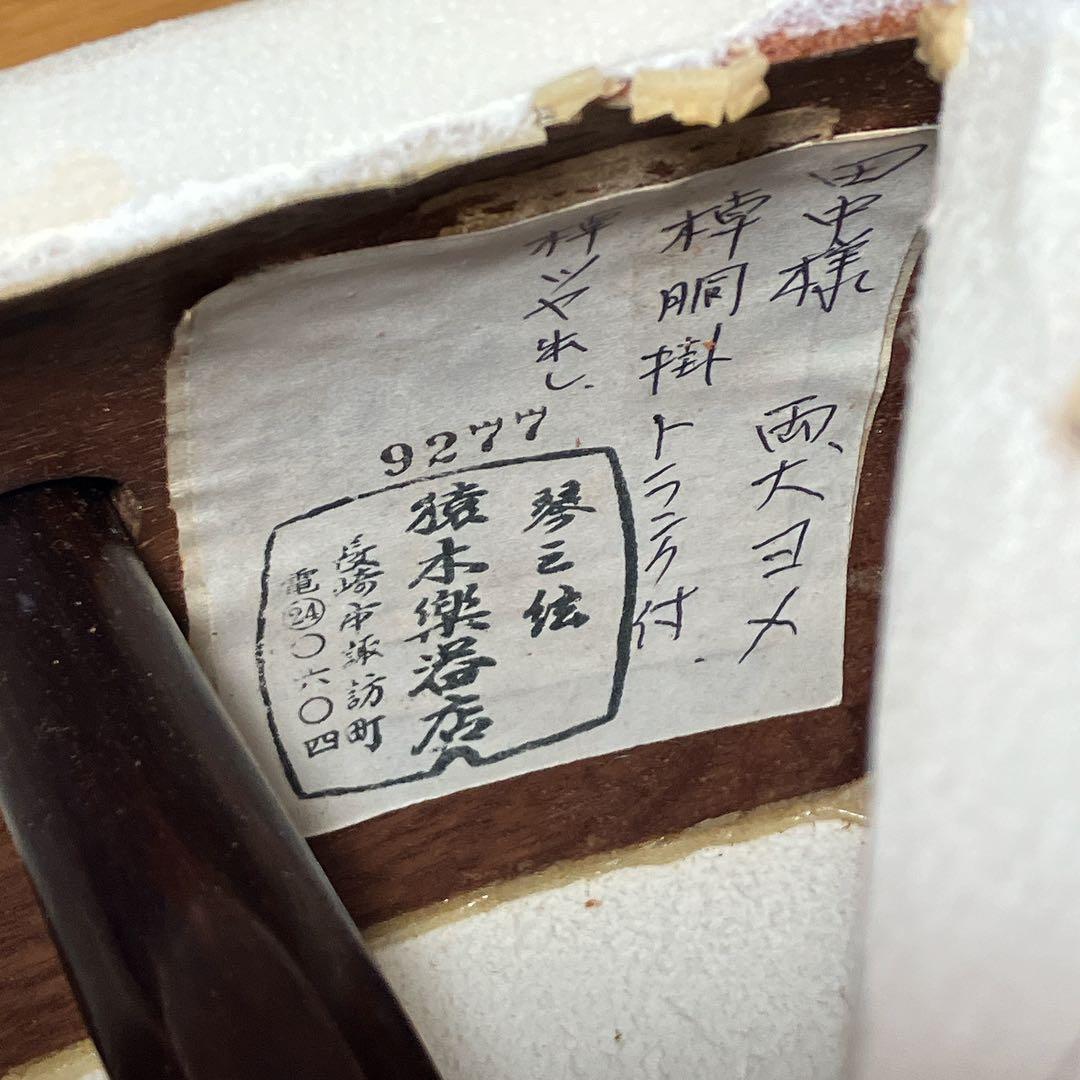 田中様 両、大ヨメ
棹胴掛トランク付.
棹ツヤ出し.
9277
琴三絃
猿木楽器店
長崎市諏訪町
電㉔〇六〇四